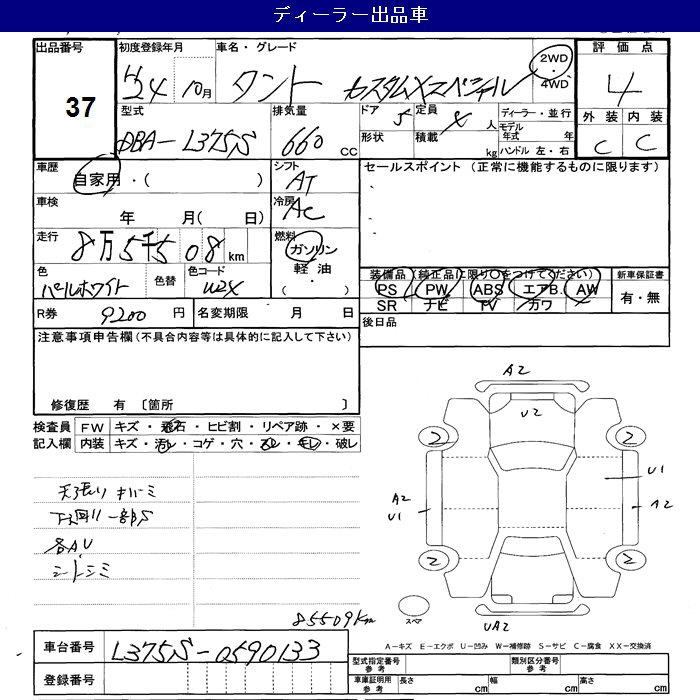 ディーラー出品車
出品番号 初度登録年月 車名・グレード 評価点
37
H24年 10月 タント カスタムXスペシャル 2WD・4WD 4
型式 排気量 ドア 定員 ディーラー・並行 外装 内装
DBA-L375S 660 CC 5 4 人 モデル年式 年 C C
形状 積載 kg ハンドル 左・右
車歴 自家用・( )
シフト AT
セールスポイント (正常に機能するものに限ります)
車検 年 月( 日)
冷房 AC
走行 8万5千508km
燃料 ガソリン 軽油 ・( )
色 パールホワイト 色替 色コード W24
装備品 (純正品に限り○をつけてください) 新車保証書
PS PW ABS エアB. AW 有・無
SR ナビ TV カワ
R券 9200 円 名変期限 月 日
後日品
注意事項申告欄(不具合内容等は具体的に記入して下さい)
修復歴 有 〔箇所 〕
検査員 FW キズ・飛石・ヒビ割・リペア跡・×要
記入欄 内装 キズ・汚レ・コゲ・穴・スレ・キレ・破レ
天張り キバミ
下廻り一部S
各AU
シートシミ
85509Km
A2
U2
2 2
A2 U1
U1
A2
2 2
スペア
UA2
A-キズ E-エクボ U-凹み W-補修跡 S-サビ C-腐食 XX-交換済
車台番号 L375S-0590133
登録番号
型式指定番号 参考 類別区分番号 参考
車庫証明用 参考 長さ cm 幅 cm 高さ cm